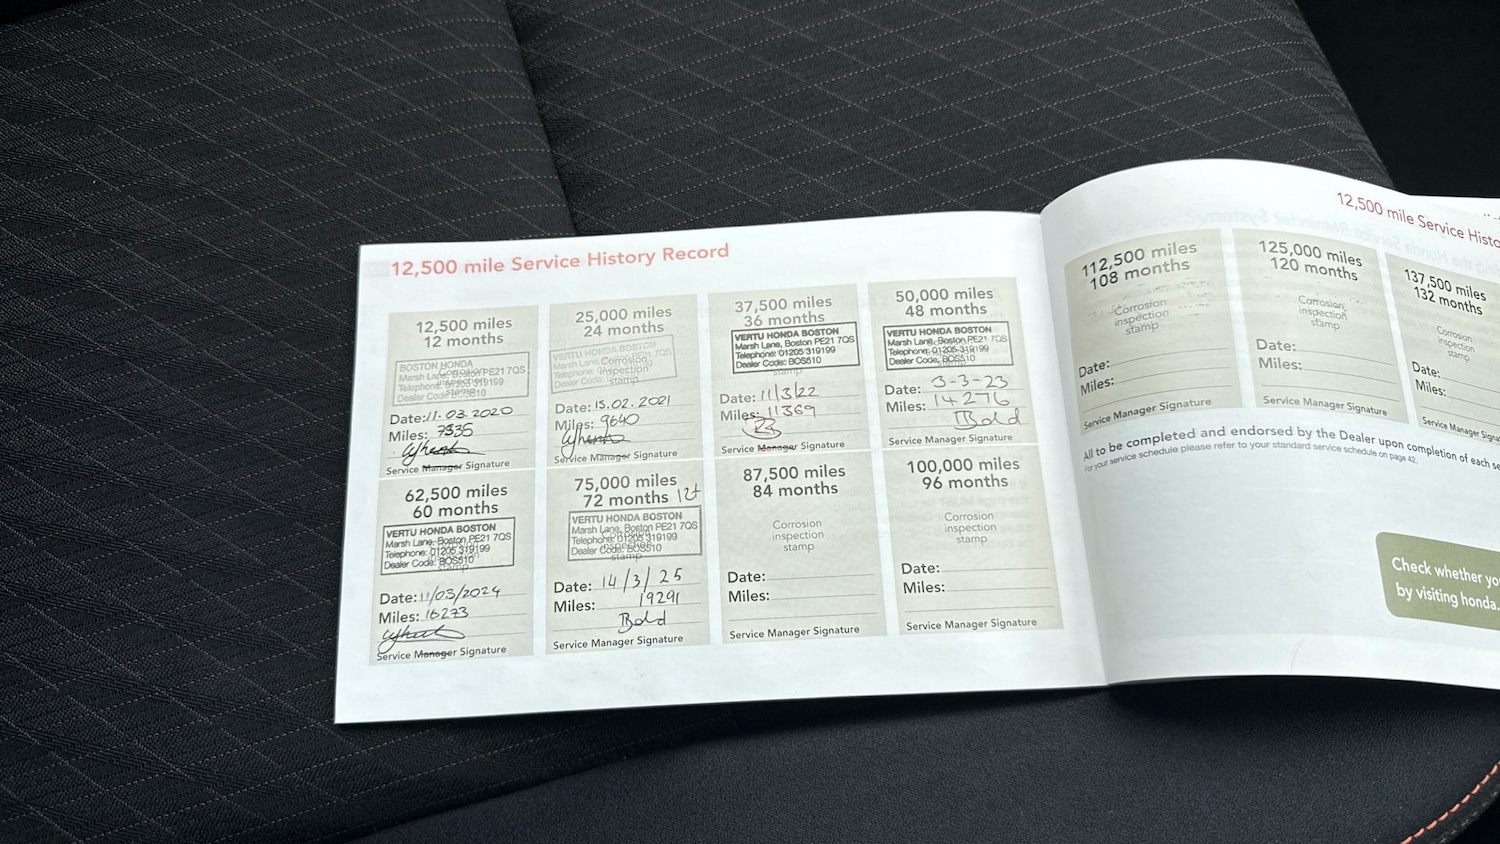 12,500 mile Service History Record
12,500 miles
12 months
BOSTON HONDA
Marsh Lane, Boston PE21 7QS
Telephone: 01205 319199
Dealer Code: BOS510
Date: 11.03.2020
Miles: 7335
Service Manager Signature
25,000 miles
24 months
VERTU HONDA BOSTON
Marsh Lane, Boston PE21 7QS
Telephone: 01205 319199
Dealer Code: BOS510
Corrosion
inspection
stamp
Date: 15.02.2021
Miles: 9640
Service Manager Signature
37,500 miles
36 months
VERTU HONDA BOSTON
Marsh Lane, Boston PE21 7QS
Telephone: 01205 319199
Dealer Code: BOS510
stamp
Date: 11/3/22
Miles: 11369
Service Manager Signature
50,000 miles
48 months
VERTU HONDA BOSTON
Marsh Lane, Boston PE21 7QS
Telephone: 01205 319199
Dealer Code: BOS510
Date: 3-3-23
Miles: 14276
Service Manager Signature
62,500 miles
60 months
VERTU HONDA BOSTON
Marsh Lane, Boston PE21 7QS
Telephone: 01205 319199
Dealer Code: BOS510
stamp
Date: 11/03/2024
Miles: 16273
Service Manager Signature
75,000 miles
72 months
VERTU HONDA BOSTON
Marsh Lane, Boston PE21 7QS
Telephone: 01205 319199
Dealer Code: BOS510
stamp
Date: 14/3/25
Miles: 19291
Service Manager Signature
87,500 miles
84 months
Corrosion
inspection
stamp
Date:
Miles:
Service Manager Signature
100,000 miles
96 months
Corrosion
inspection
stamp
Date:
Miles:
Service Manager Signature
12,500 mile Service Histo
112,500 miles
108 months
Corrosion
inspection
stamp
Date:
Miles:
Service Manager Signature
125,000 miles
120 months
Corrosion
inspection
stamp
Date:
Miles:
Service Manager Signature
137,500 miles
132 months
Corrosion
inspection
stamp
Date:
Miles:
Service Manager
All to be completed and endorsed by the Dealer upon completion of each se
For your service schedule please refer to your standard service schedule on page 42.
Check whether yo
by visiting honda.